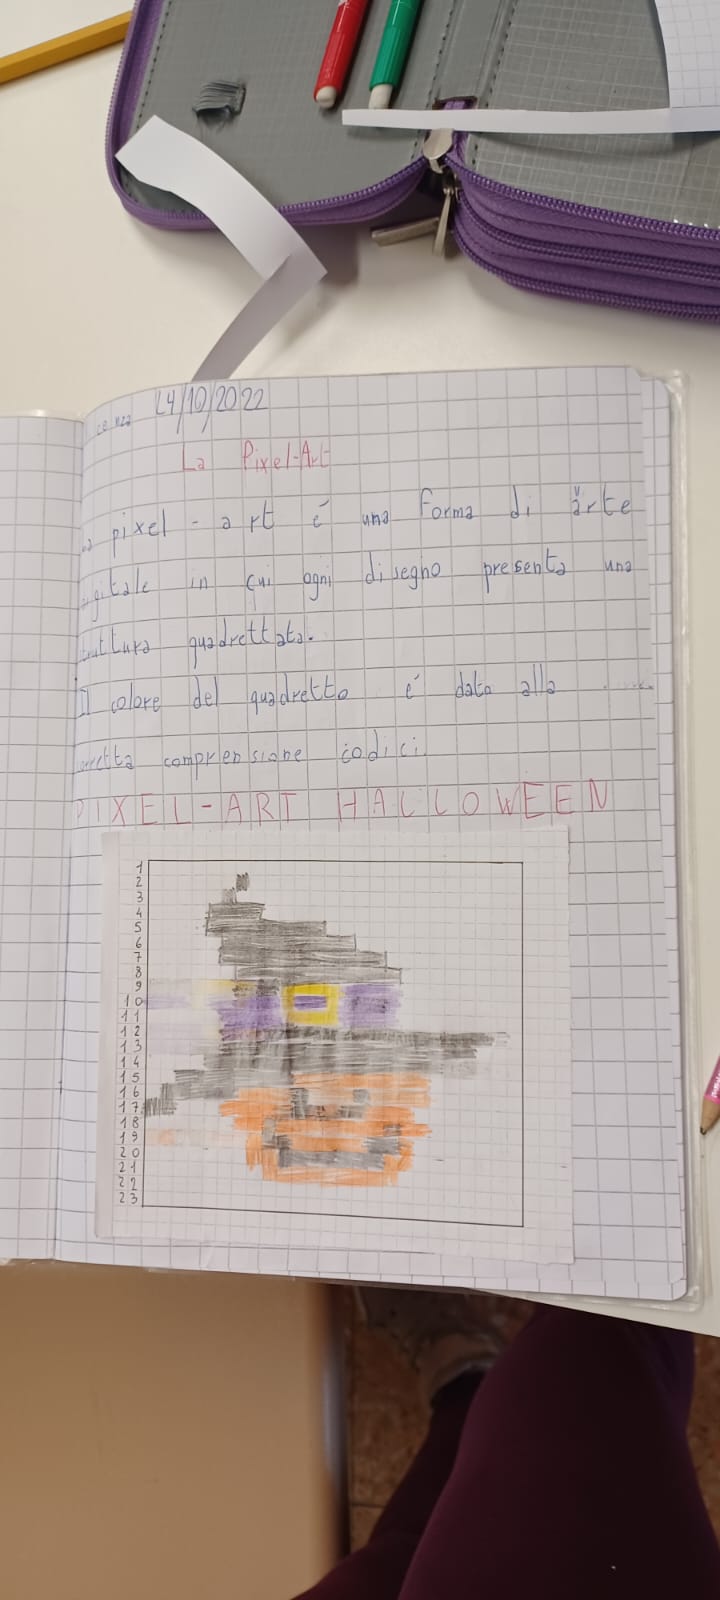 24/10/2022
La Pixel-Art
pixel - art é una forma di arte
in cui ogni disegno presenta una
quadrettata.
Il colore del quadretto é data alla
comprensione codici.
PIXEL-ART HALLOWEEN
1
2
3
4
5
6
7
8
9
10
11
12
13
14
15
16
17
18
19
20
21
22
23